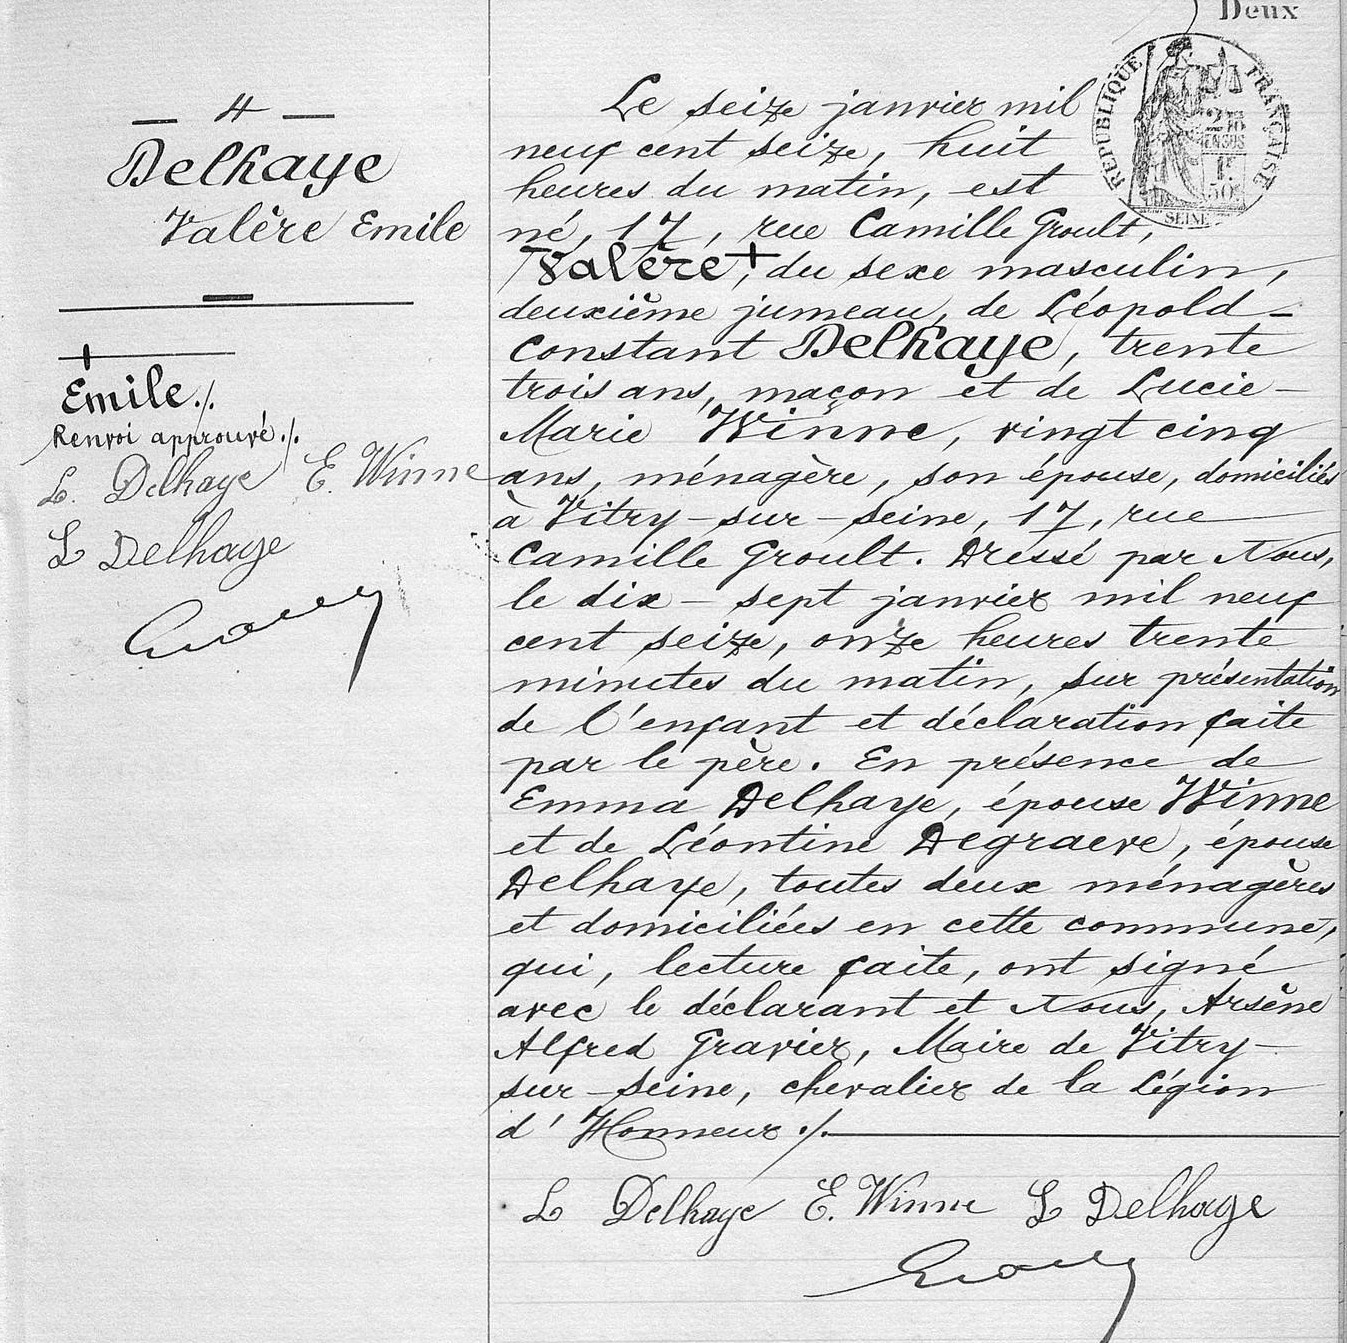 Deux
RÉPUBLIQUE FRANÇAISE
SEINE
— 4 —
Delhaye
Valère Emile
Emile ./.
Renvoi approuvé ./.
L. Delhaye E. Winne
L Delhaye
Le seize janvier mil
neuf cent seize, huit
heures du matin, est
né, 17, rue Camille Groult,
Valère +, du sexe masculin,
deuxième jumeau, de Léopold-
Constant Delhaye, trente
trois ans, maçon et de Lucie-
Marie Winne, vingt cinq
ans, ménagère, son épouse, domiciliés
à Vitry-sur-Seine, 17, rue
Camille Groult. Dressé par Nous,
le dix-sept janvier mil neuf
cent seize, onze heures trente
minutes du matin, sur présentation
de l'enfant et déclaration faite
par le père. En présence de
Emma Delhaye, épouse Winne
et de Léontine Degraeve, épouse
Delhaye, toutes deux ménagères
et domiciliées en cette commune,
qui, lecture faite, ont signé
avec le déclarant et Nous, Arsène
Alfred Gravier, Maire de Vitry-
sur-Seine, chevalier de la Légion
d'Honneur ./.
L Delhaye E. Winne L Delhaye